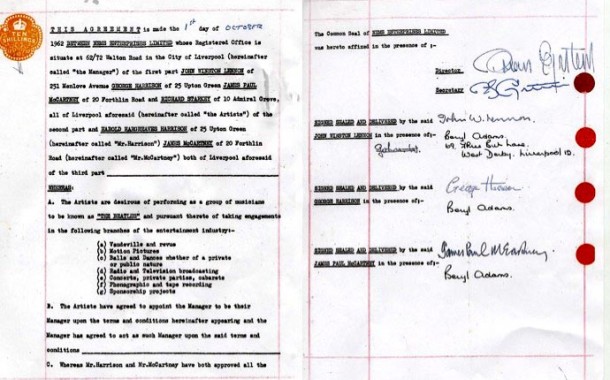 TEN
SHILLINGS
THIS AGREEMENT is made the 1st day of OCTOBER
1962 BETWEEN NEMS ENTERPRISES LIMITED whose Registered Office is
situate at 62/72 Walton Road in the City of Liverpool (hereinafter
called "the Manager") of the first part JOHN WINSTON LENNON of
251 Menlove Avenue GEORGE HARRISON of 25 Upton Green JAMES PAUL
McCARTNEY of 20 Forthlin Road and RICHARD STARKEY of 10 Admiral Grove,
all of Liverpool aforesaid (hereinafter called "the Artists") of the
second part and HAROLD HARGREAVES HARRISON of 25 Upton Green
(hereinafter called "Mr.Harrison") JAMES McCARTNEY of 20 Forthlin
Road (hereinafter called "Mr.McCartney") both of Liverpool aforesaid
of the third part
WHEREAS:
A. The Artists are desirous of performing as a group of musicians
to be known as "THE BEATLES" and pursuant thereto of taking engagements
in the following branches of the entertainment industry:-
(a) Vaudeville and revue
(b) Motion Pictures
(c) Balls and Dances whether of a private
or public nature
(d) Radio and Television broadcasting
(e) Concerts, private parties, cabarets
(f) Phonographic and tape recording
(g) Sponsorship projects
B. The Artists have agreed to appoint the Manager to be their
Manager upon the terms and conditions hereinafter appearing and the
Manager has agreed to act as such Manager upon the said terms and
conditions
C. Whereas Mr.Harrison and Mr.McCartney have both approved all the
The Common Seal of NEMS ENTERPRISES LIMITED
was hereto affixed in the presence of :-
Director
Secretary
SIGNED SEALED AND DELIVERED by the said John W. Lennon
JOHN WINSTON LENNON in the presence of:- Beryl Adams.
West Derby. Liverpool 12.
SIGNED SEALED AND DELIVERED by the said George Harrison
GEORGE HARRISON in the presence of:- Beryl Adams.
SIGNED SEALED AND DELIVERED by the said James Paul McCartney
JAMES PAUL McCARTNEY in the presence of:- Beryl Adams.